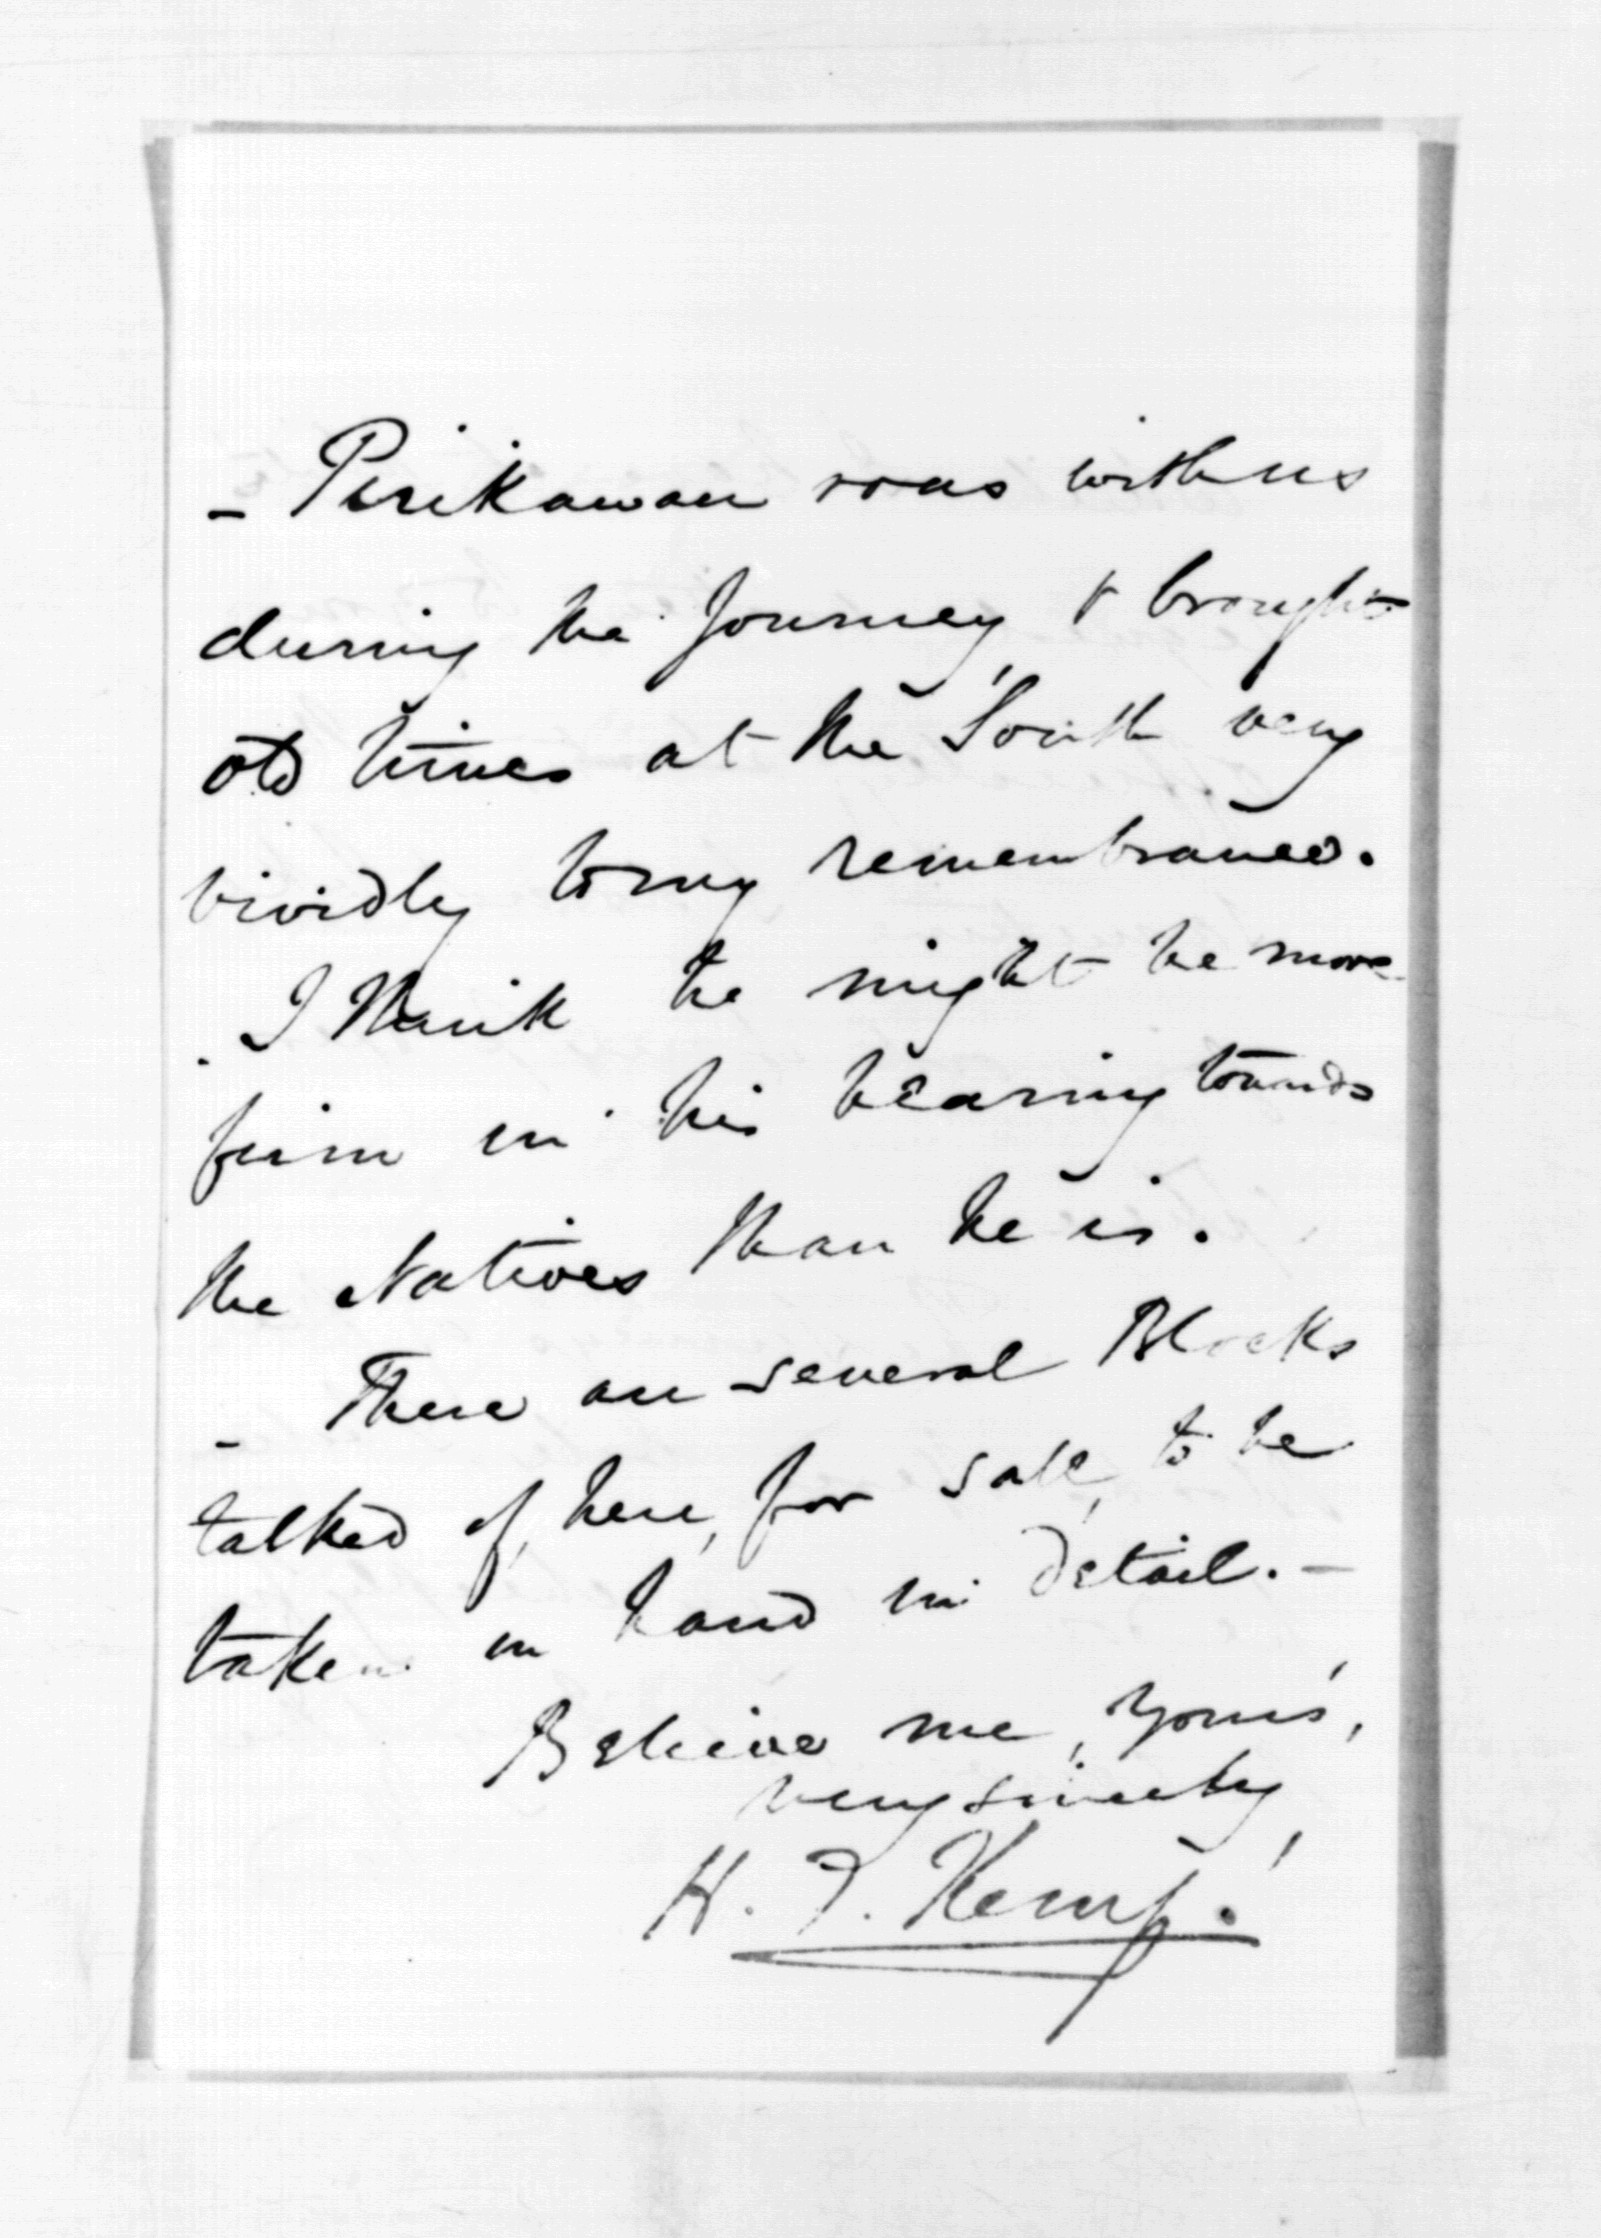 - Pirikawau was with us
during the journey & brought
old times at the South very
vividly to my remembrance.
I think he might be more
firm in his bearing towards
the Natives than he is.
- There are several Blocks
talked of, here, for sale, to be
taken in hand in detail. -
Believe me, Yours,
very sincerely,
H. T. Kemp.